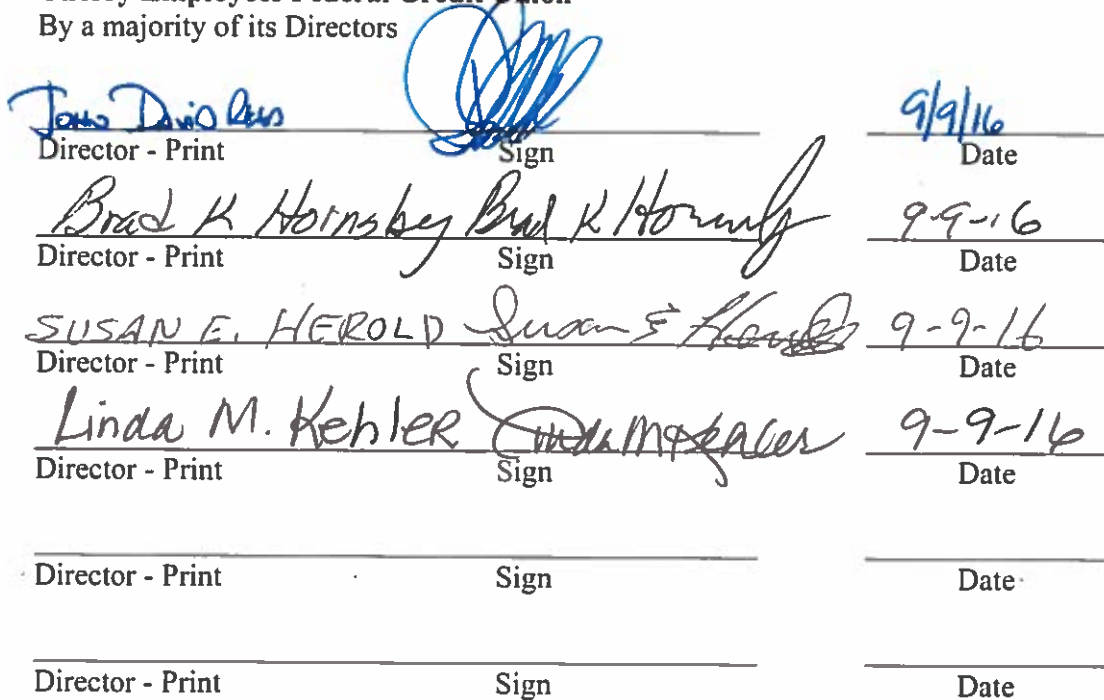 Employees Federal Credit Union
By a majority of its Directors
John David 9/9/16
Director - Print Sign Date
Brad K Hornsby Brad K Hornsby 9-9-16
Director - Print Sign Date
SUSAN E. HEROLD Susan E Herold 9-9-16
Director - Print Sign Date
Linda M. Kehler Linda M Kehler 9-9-16
Director - Print Sign Date
Director - Print Sign Date
Director - Print Sign Date